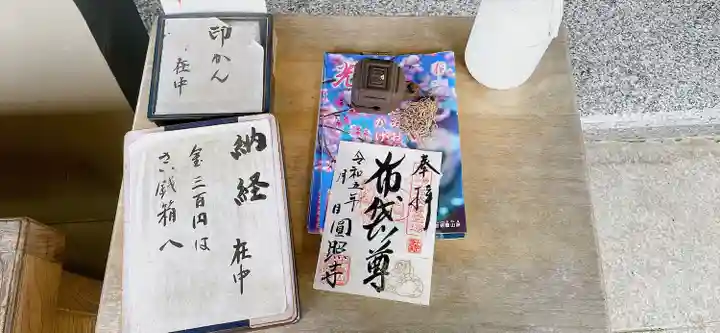 印かん
在中
納経 在中
金 三百円は
さい銭箱へ
奉拝
布袋尊
令和五年 月 日
圓照寺
春